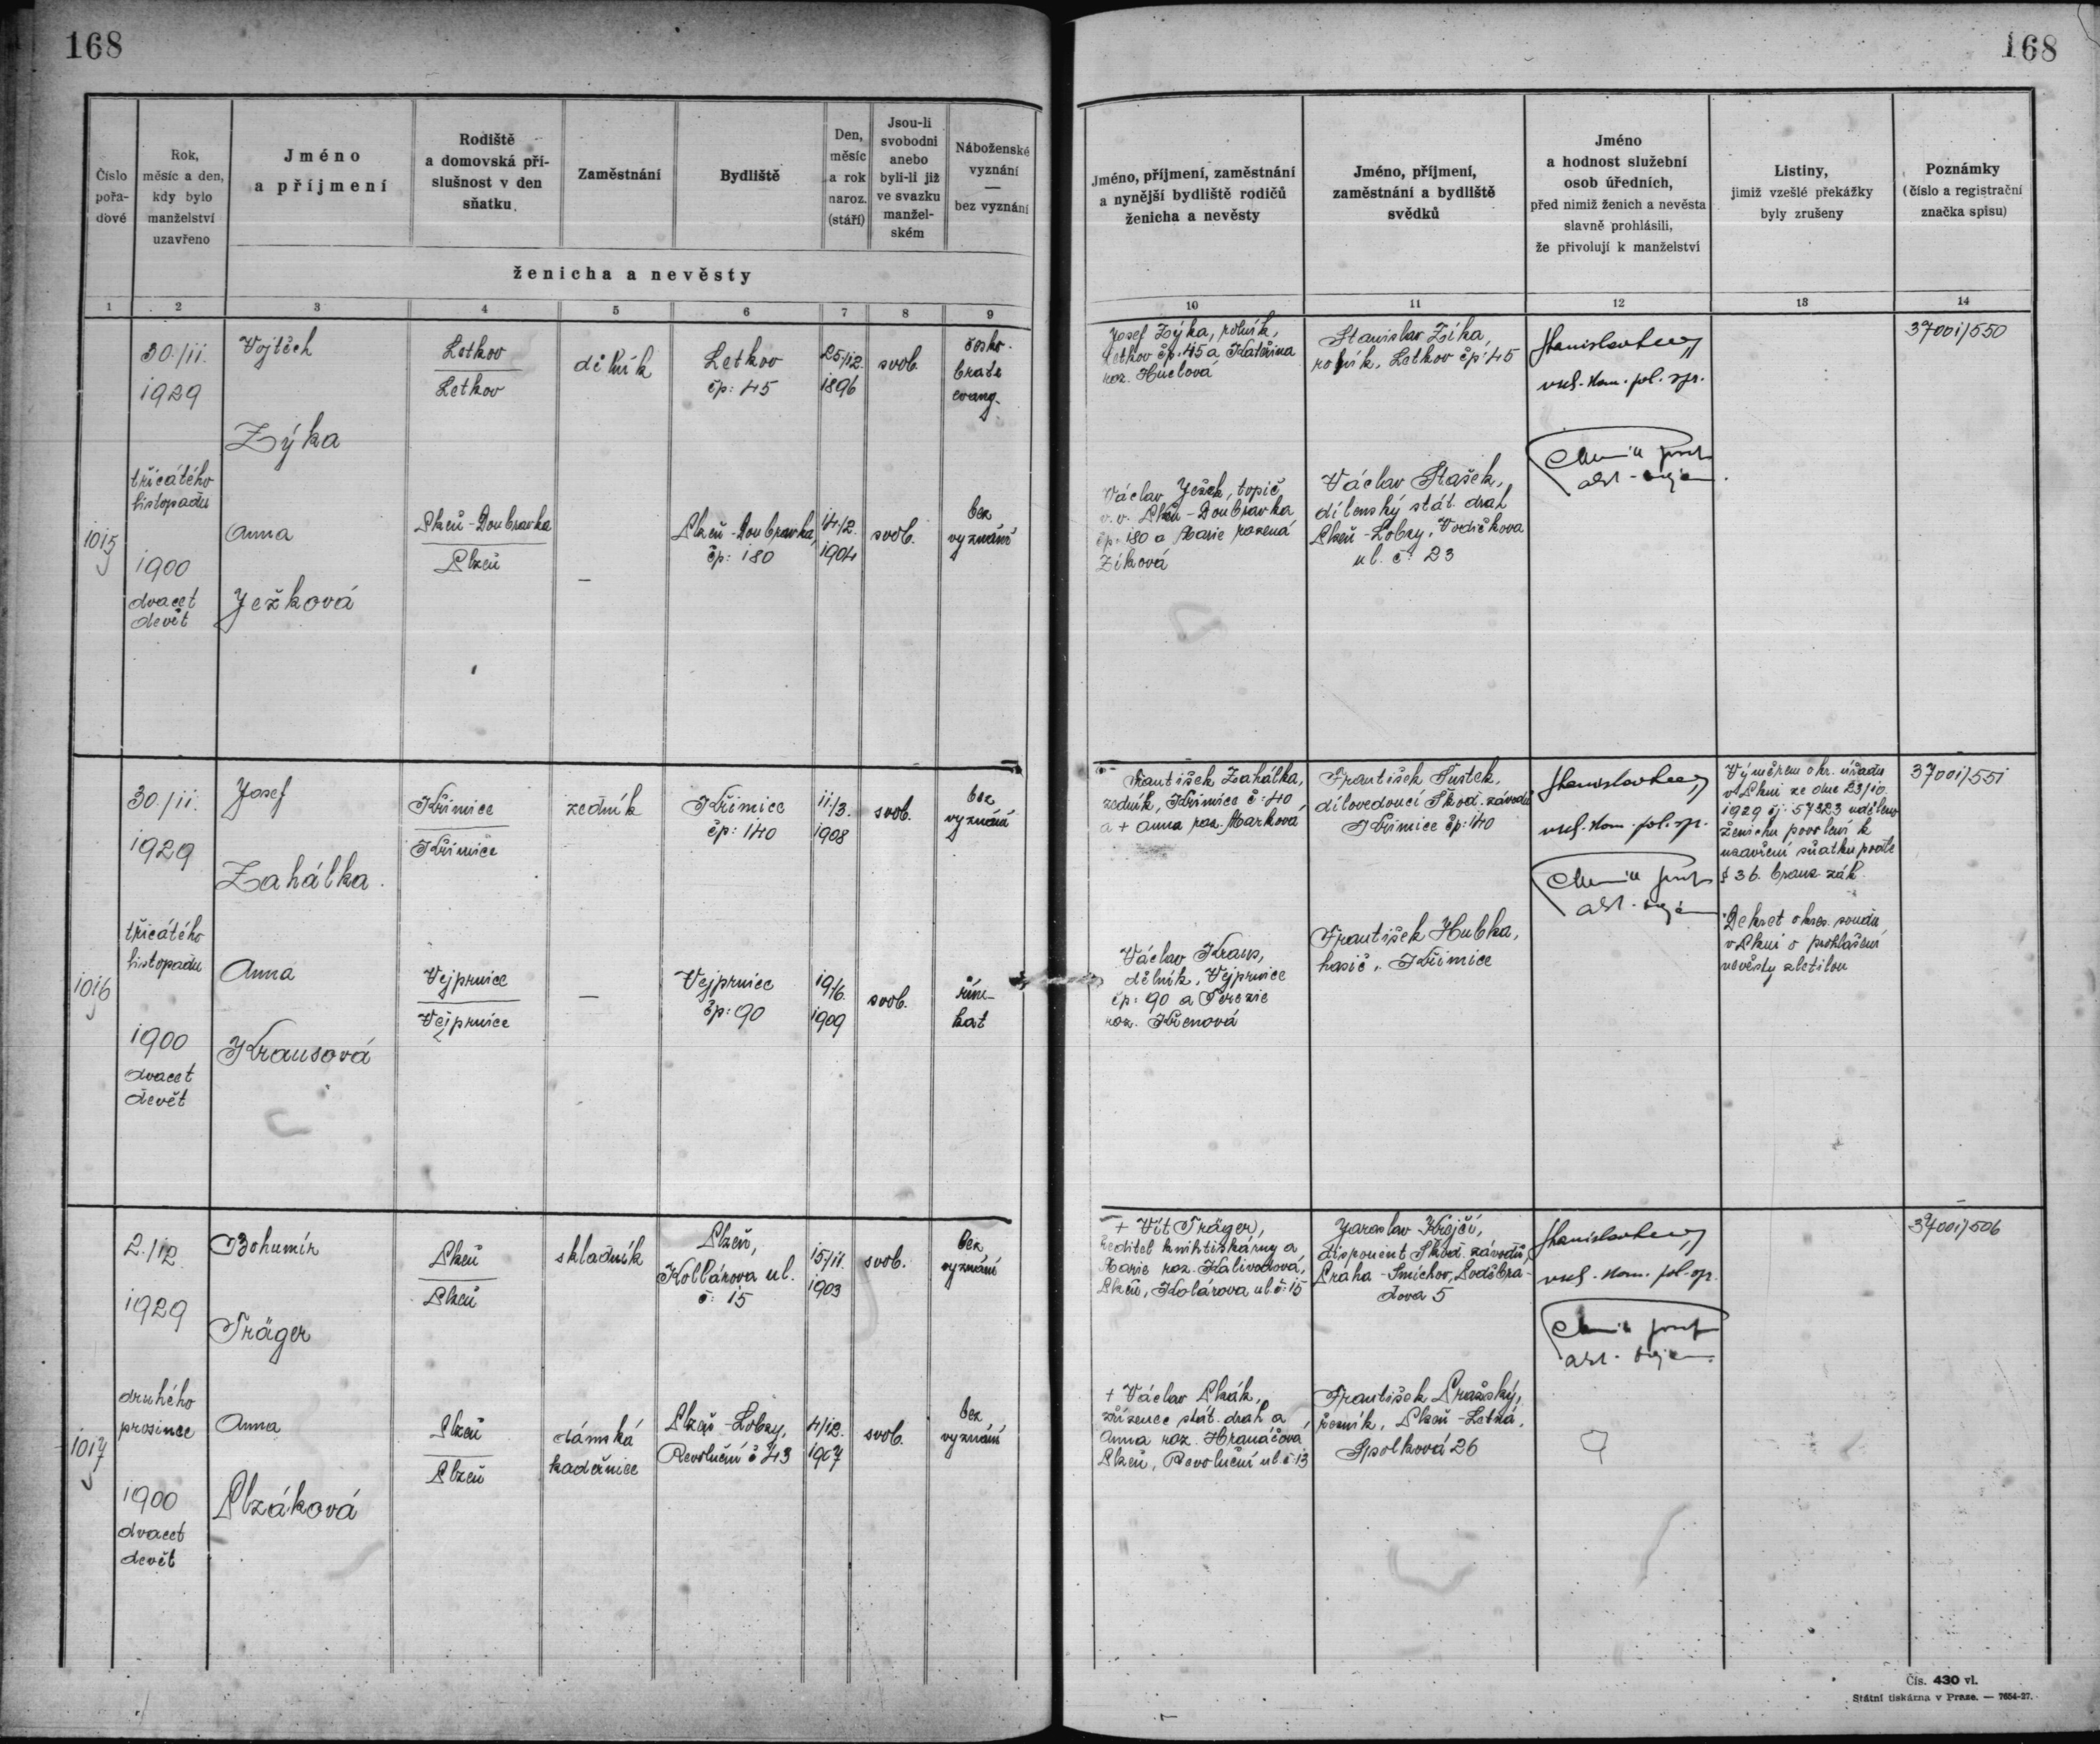 168
168
Číslo
pořa-
dové
Rok,
měsíc a den,
kdy bylo
manželství
uzavřeno
Jméno
a příjmení
Rodiště
a domovská pří-
slušnost v den
sňatku
Zaměstnání
Bydliště
Den,
měsíc
a rok
naroz.
(stáří)
Jsou-li
svobodni
anebo
byli-li již
ve svazku
manžel-
ském
Náboženské
vyznání
—
bez vyznání
ženicha a nevěsty
Jméno, příjmení, zaměstnání
a nynější bydliště rodičů
ženicha a nevěsty
Jméno, příjmení,
zaměstnání a bydliště
svědků
Jméno
a hodnost služební
osob úředních,
před nimiž ženich a nevěsta
slavně prohlásili,
že přivolují k manželství
Listiny,
jimiž vzešlé překážky
byly zrušeny
Poznámky
(číslo a registrační
značka spisu)
1 2 3 4 5 6 7 8 9 10 11 12 13 14
1015
30./11.
1929
třicátého
listopadu
1900
dvacet
devět
Vojtěch
Zýka
Letkov
Letkov
dělník
Letkov
čp: 45
25/12.
1896
svob.
česko-
bratr.
evang.
Anna
Ježková
Plzeň-Doubravka
Plzeň
—
Plzeň-Doubravka,
čp: 180
14/2.
1904
svob.
bez
vyznání
Josef Zýka, rolník,
Letkov čp: 45 a Kateřina
roz. Huclová
Václav Ježek, topič
v. v. Plzeň-Doubravka
čp: 180 a Marie rozená
Zíková
Stanislav Zíka,
rolník, Letkov čp: 45
Václav Stašek,
dílenský stát. drah
Plzeň-Lobzy, Vodičkova
ul. č: 23
vrch. kom. pol. spr.
37001/550
1016
30./11.
1929
třicátého
listopadu
1900
dvacet
devět
Josef
Zahálka
Křimice
Křimice
zedník
Křimice
čp: 140
11./3.
1908
svob.
bez
vyznání
Anna
Krausová
Vejprnice
Vejprnice
—
Vejprnice
čp: 90
19/6.
1909
svob.
řím-
kat
František Zahálka,
zedník, Křimice č: 40
a + Anna roz. Marková
Václav Kraus,
dělník, Vejprnice
čp: 90 a Terezie
roz. Křenová
František Tustek,
dílovedoucí Škod. závodů
Křimice čp: 140
František Hubka,
hasič, Křimice
vrch. kom. pol. spr.
Výměrem okr. úřadu
v Plzni ze dne 23/10.
1929 čj: 57323 uděleno
ženichu povolení k
uzavření sňatku podle
§ 36. bran. zák.
Dekret okres. soudu
v Plzni o prohlášení
nevěsty zletilou
37001/551
1017
2./12.
1929
druhého
prosince
1900
dvacet
devět
Bohumír
Träger
Plzeň
Plzeň
skladník
Plzeň,
Kollárova ul.
č: 15
15/11.
1903
svob.
bez
vyznání
Anna
Plzáková
Plzeň
Plzeň
dámská
kadeřnice
Plzeň-Lobzy,
Revoluční č 43
4/12.
1907
svob.
bez
vyznání
+ Vít Träger,
ředitel knihtiskárny a
Marie roz. Kalivodová,
Plzeň, Kolárova ul. č: 15
+ Václav Plzák,
zřízenec stát. drah a
Anna roz. Hranáčova,
Plzeň, Revoluční ul. č 13
Jaroslav Krejčí,
disponent Škod. závodů,
Praha-Smíchov, Poděbra-
dova 5
František Pražský,
řezník, Plzeň-Letná,
Spolková 26
vrch. kom. pol. spr.
37001/506
Čís. 430 vl.
Státní tiskárna v Praze. — 7654-27.